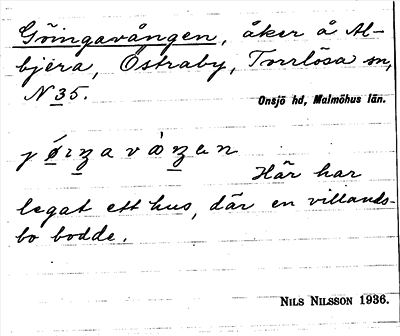 Göingavången, åker å Al-
bjera, Östraby, Torrlösa sn,
N 35.
Onsjö hd, Malmöhus län.
Här har
legat ett hus, där en villands-
bo bodde.
NILS NILSSON 1936.